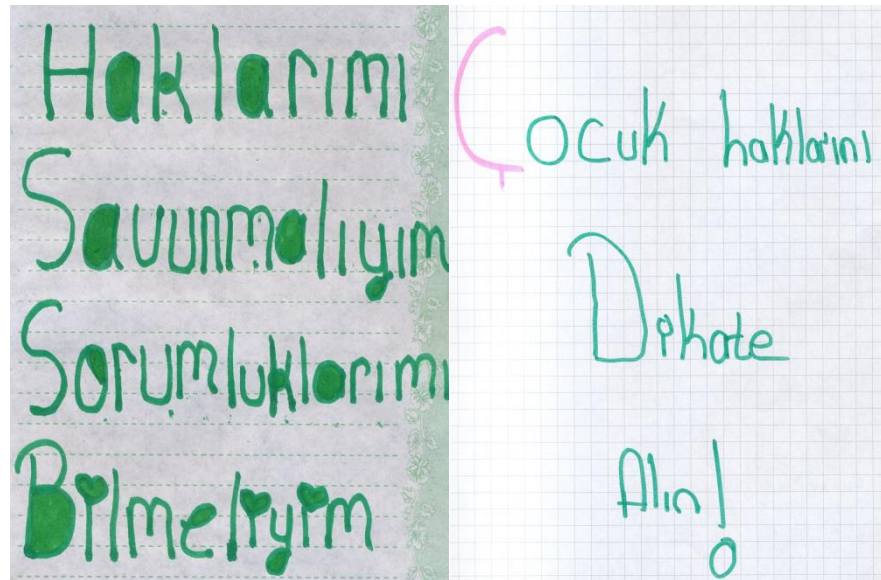 Haklarımı
Savunmalıyım
Sorumluklarımı
Bilmeliyim
Çocuk haklarını
Dikate
Alın!